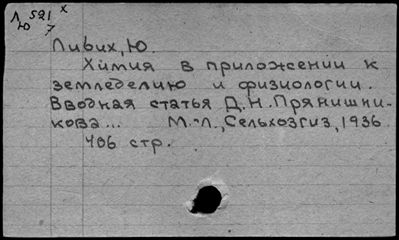 Л 521 х
Ю 7
Либих, Ю.
Химия в приложении к
земледелию и физиологии.
Вводная статья Д.Н. Прянишни-
кова... М.-Л., Сельхозгиз, 1936
406 стр.